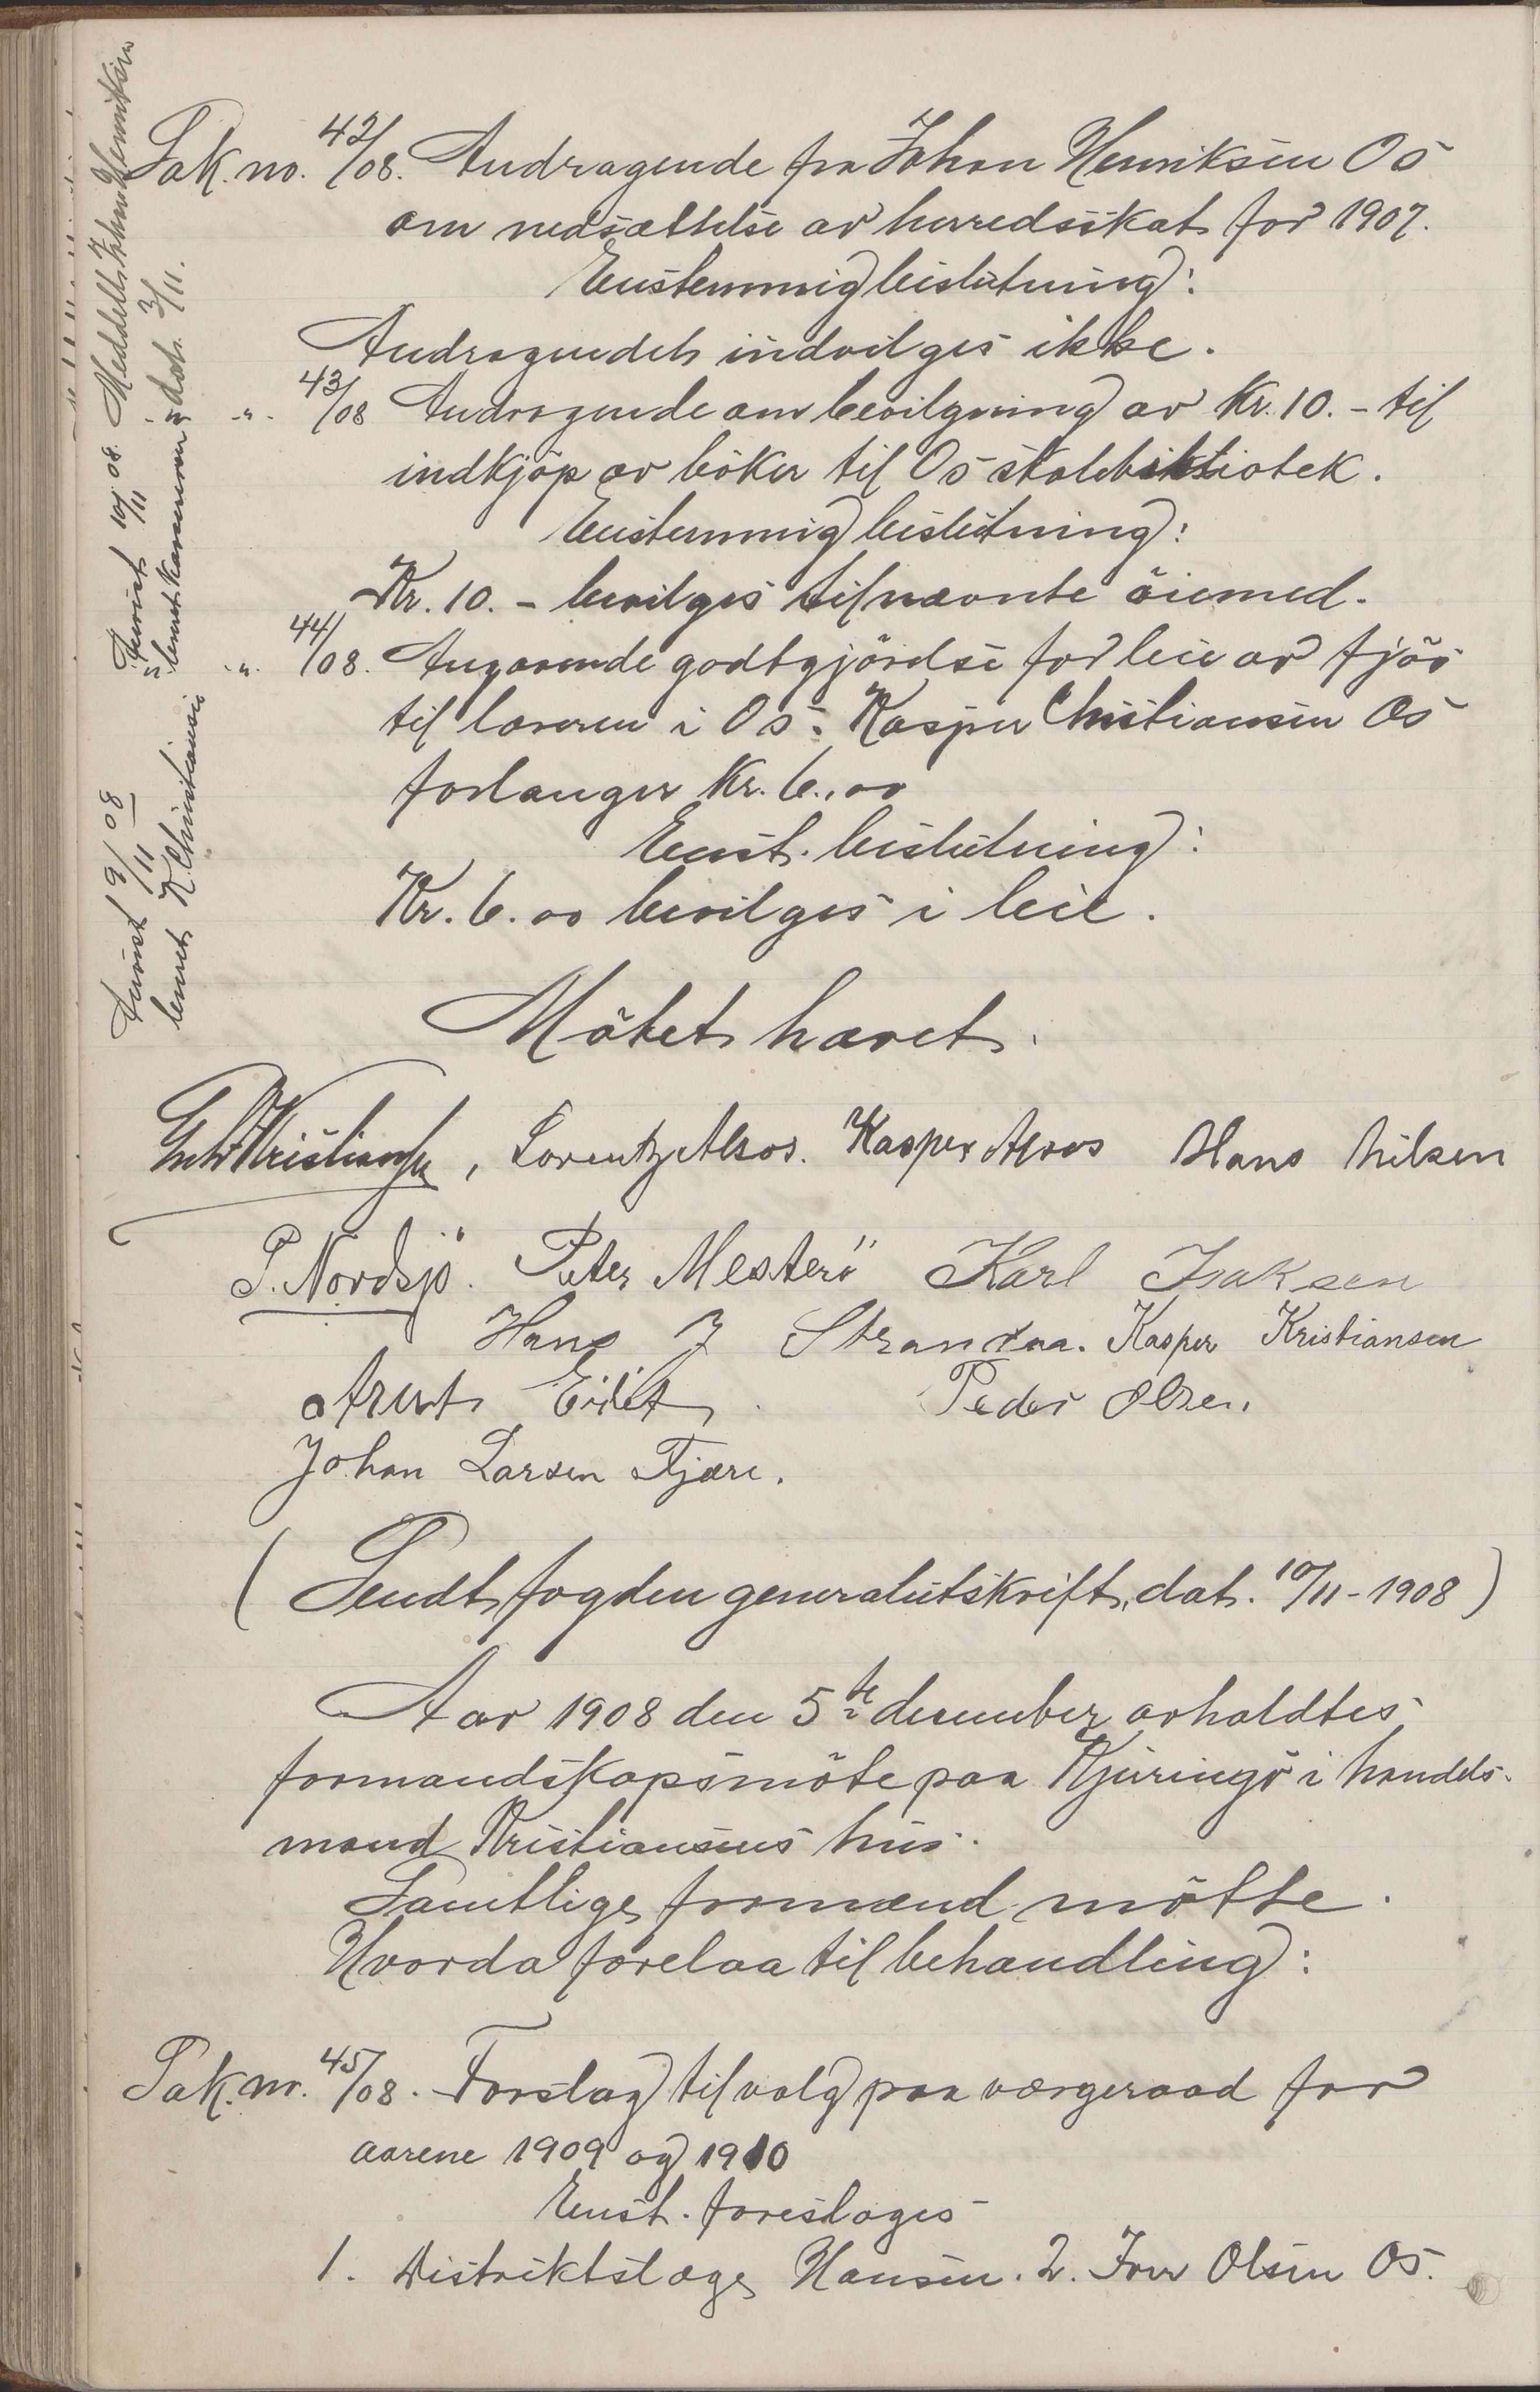 Sak. no. 42/08. Andragende fra Johan Henriksen Os
om nedsættelse av herredsskat for 1907.
Enstemmig beslutning:
Andragendet indvilges ikke.
-"- 43/08 Andragende om bevilgning av Kr. 10.- til
indkjøp av bøker til Os skolebibliotek.
Enstemmig beslutning:
Kr. 10.- bevilges til nævnte øiemed.
-"- 44/08. Angaaende godtgjørelse for leie av fjøs
til læreren i Os. Kasper Christiansen Os
forlanger Kr. 6.00
Enst. beslutning:
Kr. 6.00 bevilges i leie.
Møtet hævet.
Kristiansen, Lorentz Alsos. Kasper Alsos Hans Nilsen
P. Nordsjø. Peter Mesterö Karl Isaksen
Hans J Strandaa. Kasper Kristiansen
Arent Eidet. Peder Olsen.
Johan Larsen Fjære.
(Sendt fogden generalutskrift, dat. 10/11-1908)
Aar 1908 den 5te december avholdtes
formandskapsmøte paa Kjerringø i handels-
mand Kristiansens hus.
Samtlige formænd møtte.
Hvorda forelaa til behandling:
Sak. nr. 45/08. Forslag til valg paa værgeraad for
aarene 1909 og 1910
Enst. foreslages
1. Distriktslæge Hansen. 2. Fru Olsen Os.
Anvist 9/11 08
lenet K Christiansen
Anvist 10/11 08. Meddelt Johan Henriksen
dat. 3/11.